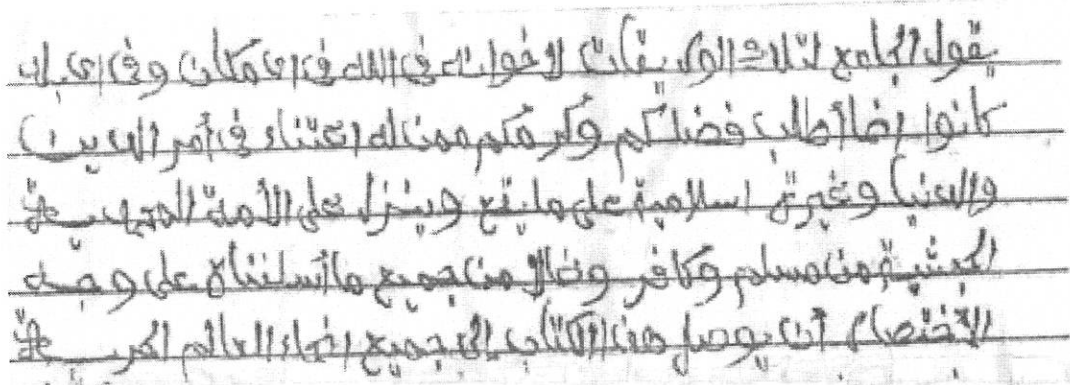 يقول الجامع لتلك الوريقات لإخوانه في الله في اي مكان وفي اي بلد
كانوا إنما أطلب فضلكم وكرمكم ممن له اعتناء في أمر الدين
والدنيا وغيرة اسلامية على ما يقع وينزل على الأمة
الحبشية من مسلم وكافر من جميع ما أسلفناه على وجه
الإختصار أن يوصل هذا الكتاب إلى جميع انحاء العالم